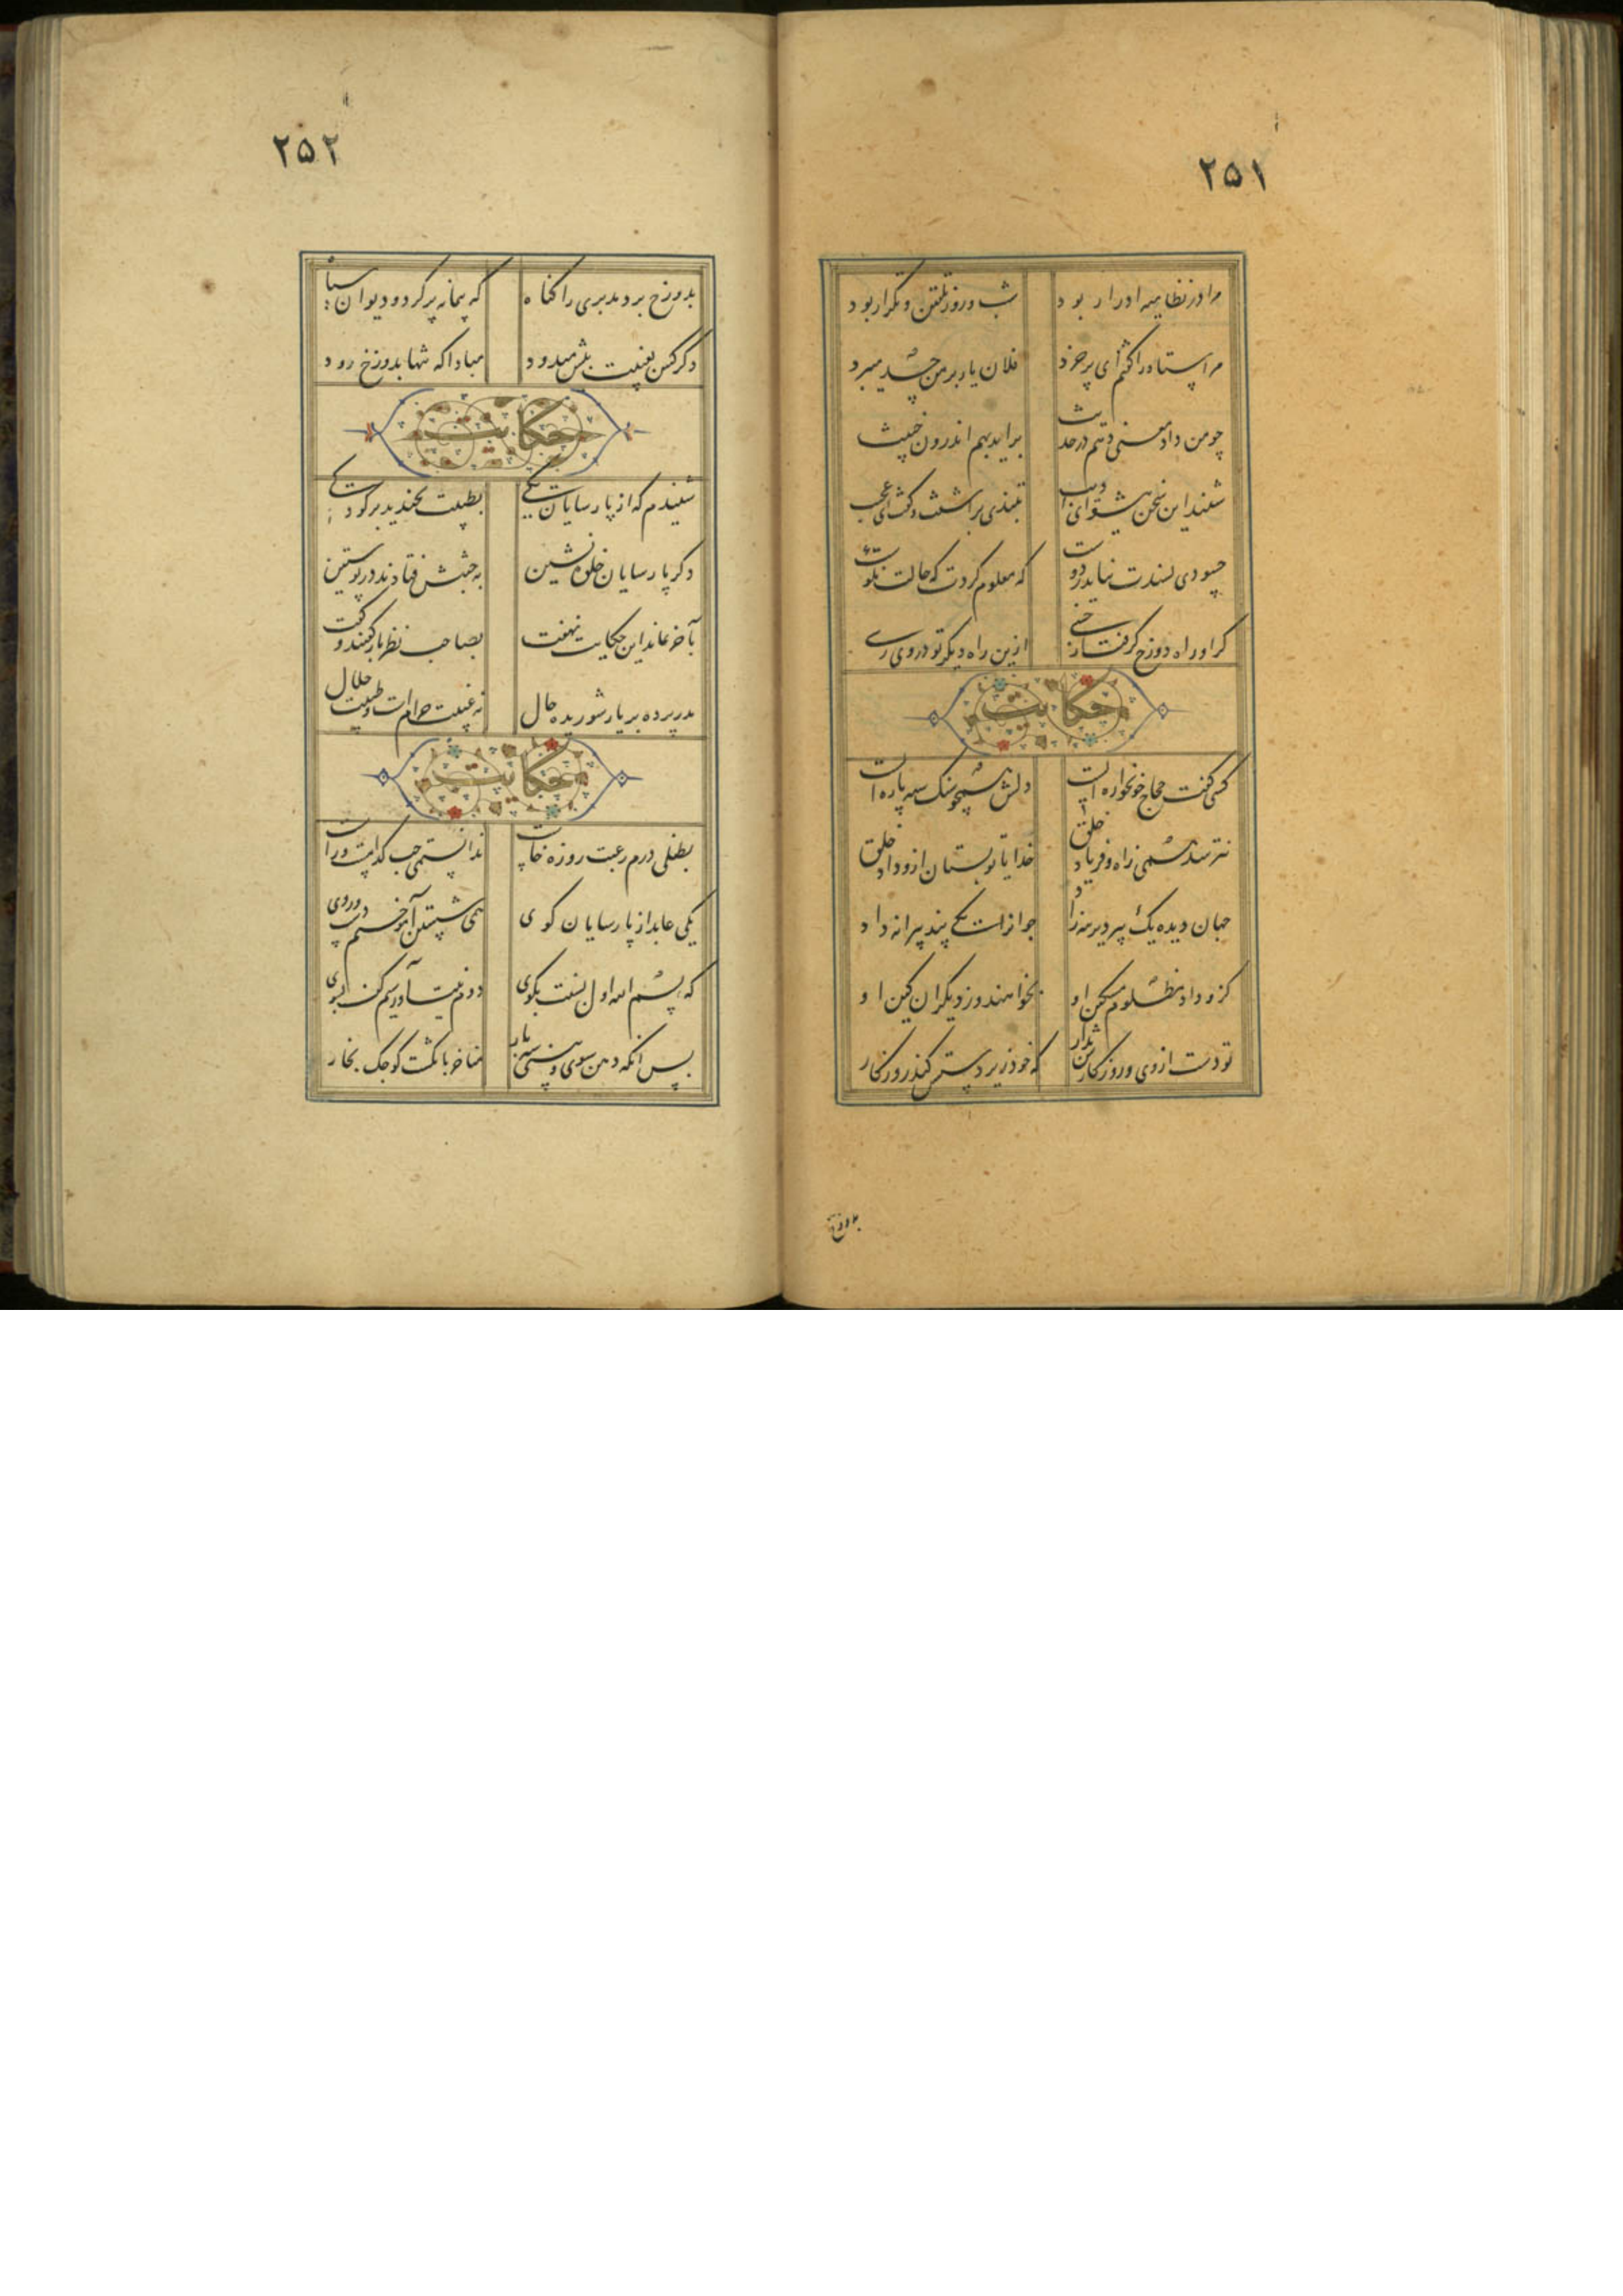 ۲۵۱
مرا در نظامیه ادرار بود شب و روز تلقین و تکرار بود
مر استاد را گفتم ای پر خرد فلان یار بر من حسد میبرد
چو من داد معنی دهم در حدیث براید بهم اندرون خبیث
شنید این سخن پیشوای ادب بتندی براشفت و گفت ای عجب
حسودی پسندت نیاید ز دوست که معلوم کردت که حالت نکوست
گر او راه دوزخ گرفت از خسی ازین راه دیگر تو در وی رسی
حکایت
کسی گفت حجاج خونخواره ایست دلش همچو سنگ سیه پاره ایست
نترسد همی ز آه و فریاد خلق خدایا تو بستان ازو داد خلق
جهان دیده یک پیر دیرینه زاد جوانرا یکی پند پیرانه داد
کزو داد مظلوم مسکین او بخواهند و ز دیگران کین او
تو دست از وی و روزگارش بدار که خود زیر دستش کند روزگار
بدوزخ
۲۵۲
بدوزخ برد مدبری را گناه که پیمانه پر کرد و دیوان سیاه
دگر کس بغیبت پیش میدود مبادا که تنها بدوزخ رود
حکایت
شنیدم که از پارسایان یکی بطیبت بخندید بر کودکی
دگر پارسایان خلوه نشین به غیبش فتادند در پوستین
بآخر نماند این حکایت نهفت بصاحب نظر باز گفتند و گفت
مدر پرده بر یار شوریده حال نه غیبت حرام است و طیبت حلال
حکایت
بطفلی درم رغبت روزه خاست ندانستمی چپ کدامست و راست
یکی عابد از پارسایان کوی همی شستن آموختم دست و روی
که بسم الله اول بسنت بگوی دوم نیت آور سیم کف بشوی
پس انگه دهن شوی و بینی سه بار مناخر بانگشت کوچک بخار